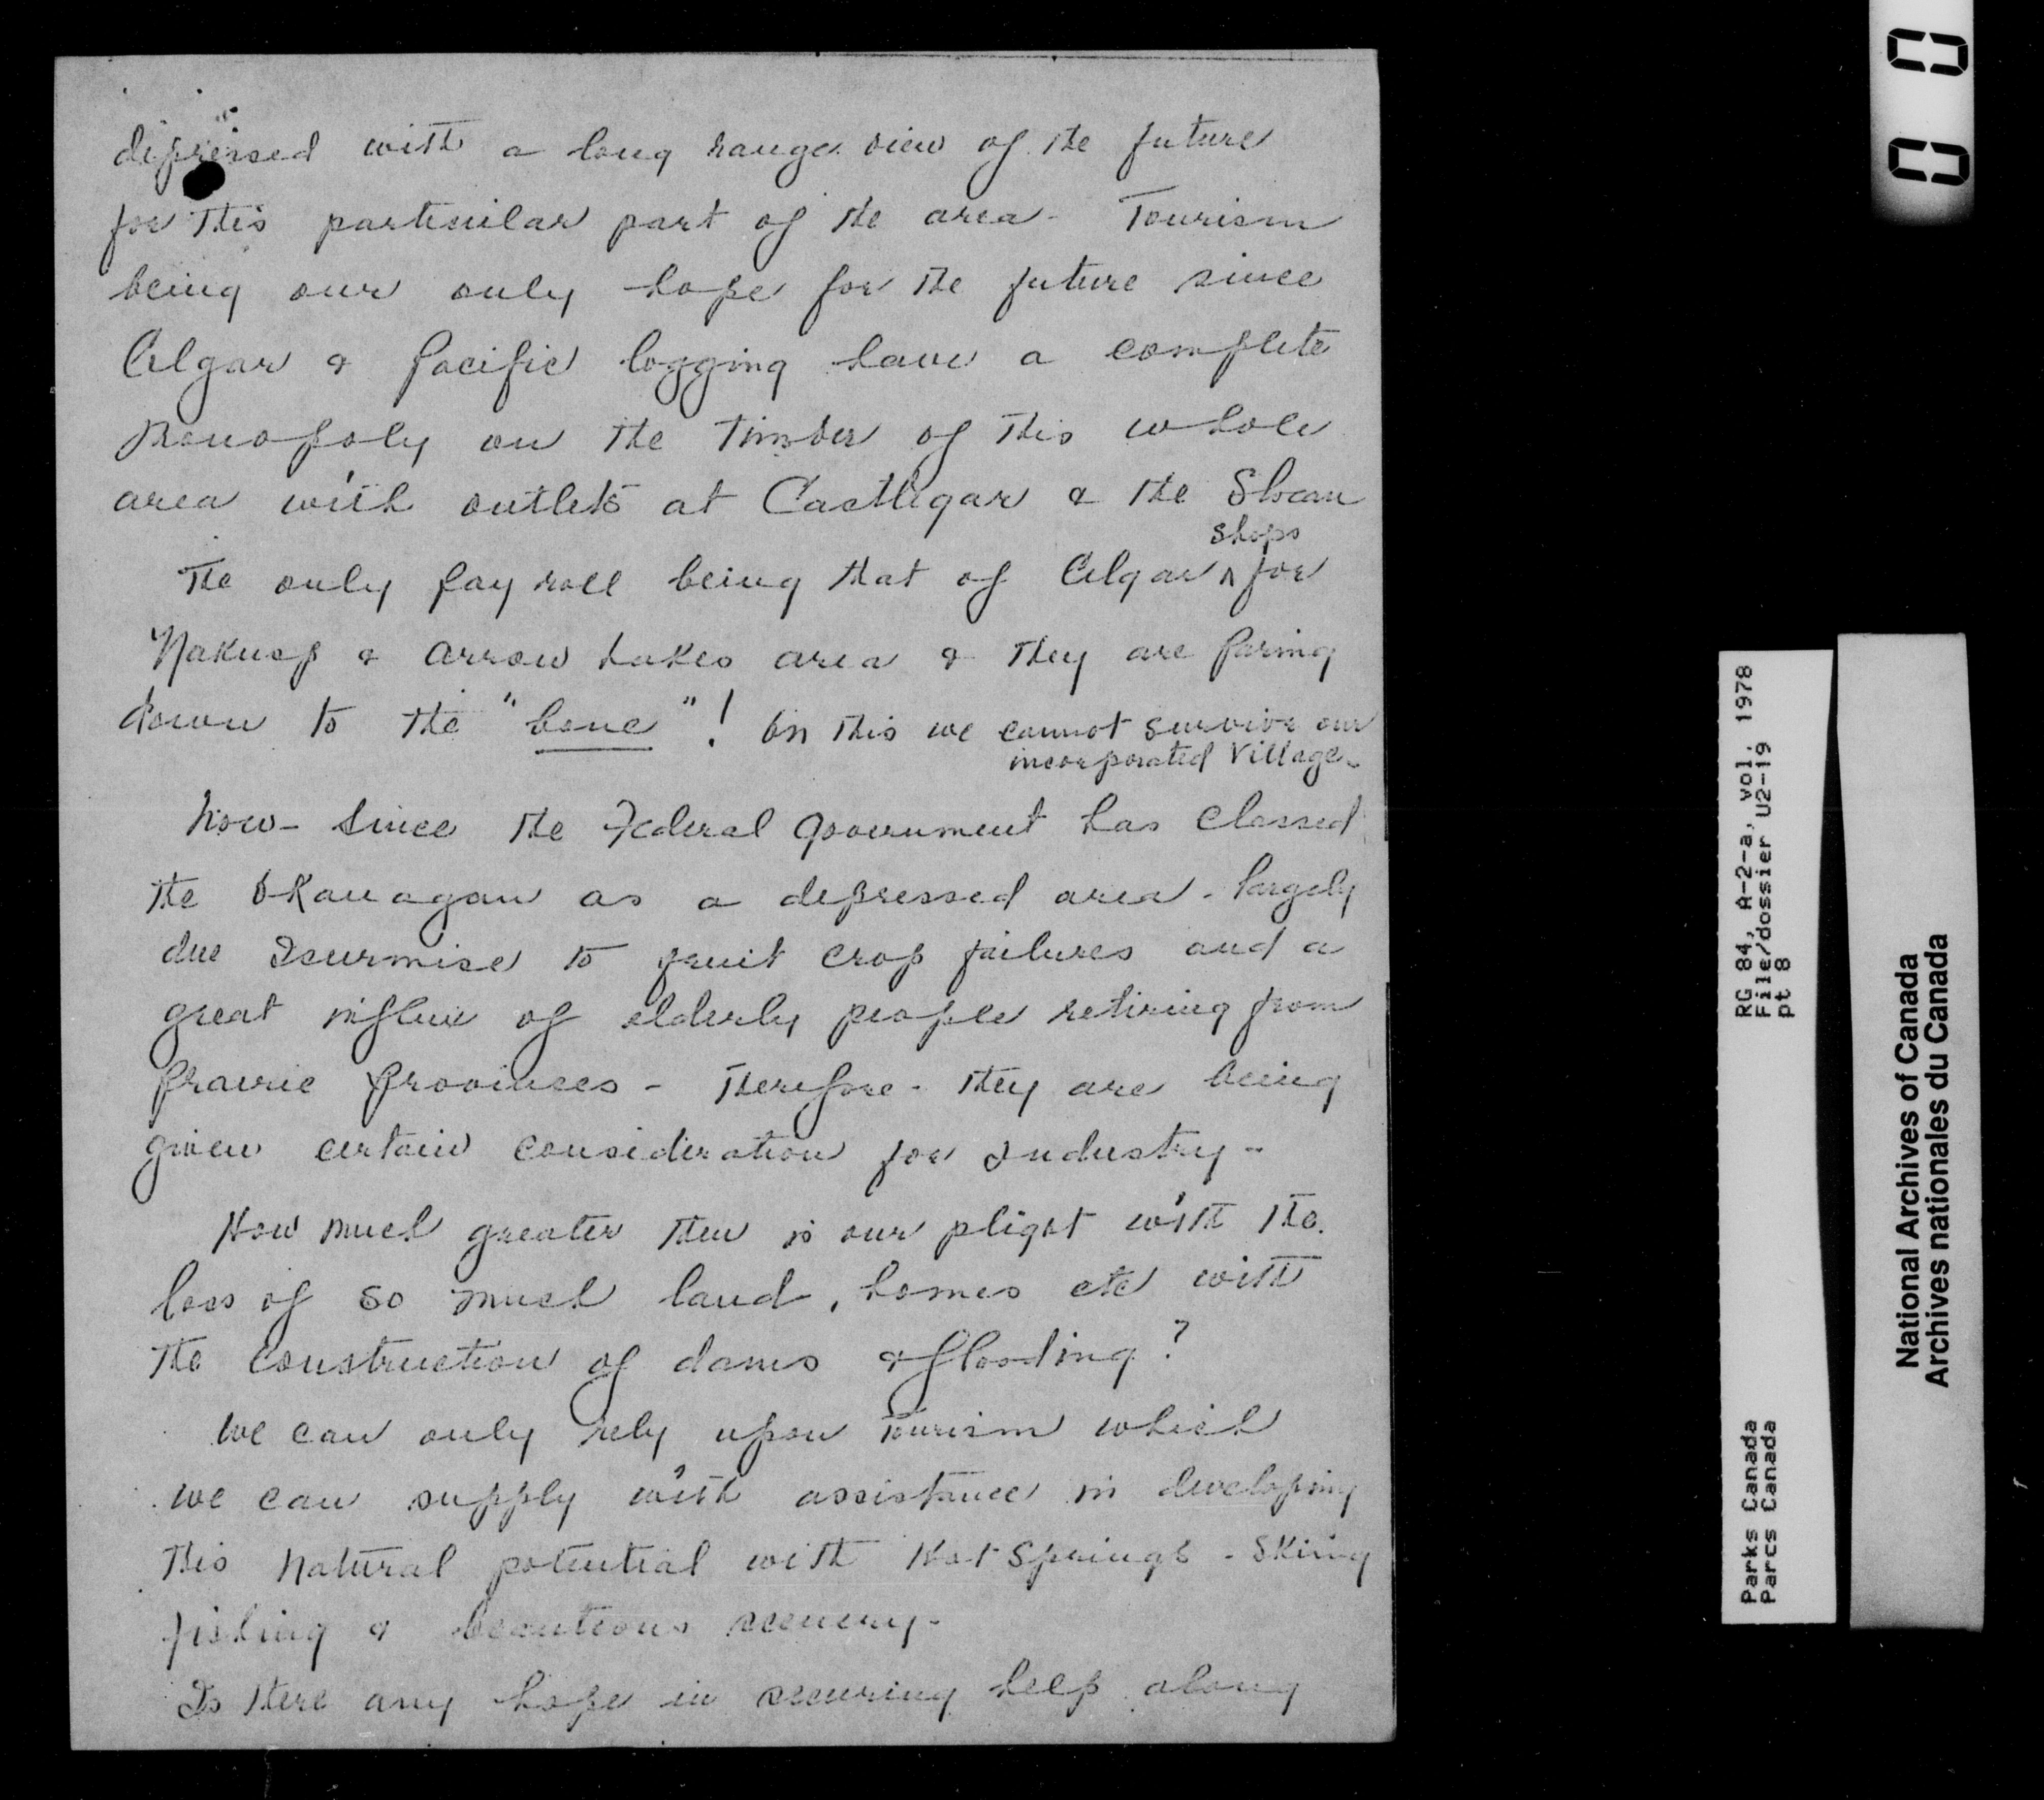 depressed with a long range view of the future
for this particular part of the area - Tourism
being our only hope for the future since
Celgar & Pacific logging have a complete
Monopoly on the Timber of this whole
area with outlets at Castlegar & the Slocan
The only pay roll being that of Celgar ^ shops for
Nakusp & Arrow Lakes area & they are paring
down to the "bone"! On this we cannot survive our
incorporated Village.
Now - Since the Federal Government has classed
the Okanagan as a depressed area - largely
due I surmise to fruit crop failures and a
great influx of elderly people retiring from
prairie provinces - Therefore - they are being
given certain consideration for Industry -
How much greater then is our plight with the
loss of so much land, homes etc with
the construction of dams & flooding?
We can only rely upon Tourism which
we can supply with assistance in developing
this Natural potential with Hot Springs - Skiing
fishing & beauteous scenery -
Is there any hope in securing help along
00
RG 84, A-2-a, vol. 1978
File/dossier U2-19
pt 8
Parks Canada
Parcs Canada
National Archives of Canada
Archives nationales du Canada